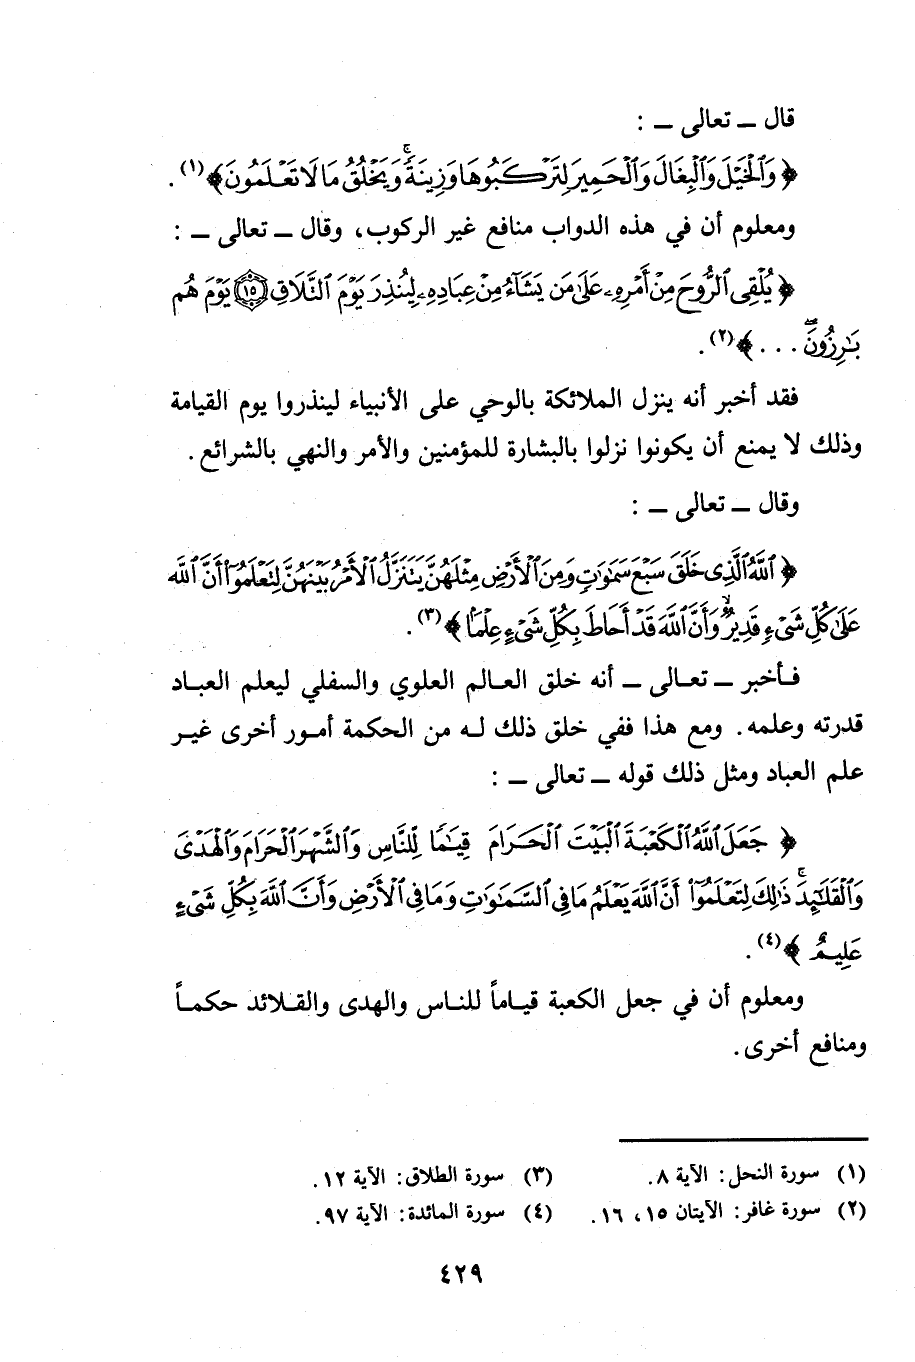 قال ــ تعالى ــ :
﴿ وَٱلْخَيْلَ وَٱلْبِغَالَ وَٱلْحَمِيرَ لِتَرْكَبُوهَا وَزِينَةً ۚ وَيَخْلُقُ مَا لَا تَعْلَمُونَ ﴾(١) .
ومعلوم أن في هذه الدواب منافع غير الركوب، وقال ــ تعالى ــ :
﴿ يُلْقِى ٱلرُّوحَ مِنْ أَمْرِهِۦ عَلَىٰ مَن يَشَآءُ مِنْ عِبَادِهِۦ لِيُنذِرَ يَوْمَ ٱلتَّلَاقِ ١٥ يَوْمَ هُم
بَـٰرِزُونَ ۖ . . . ﴾(٢) .
فقد أخبر أنه ينزل الملائكة بالوحي على الأنبياء لينذروا يوم القيامة
وذلك لا يمنع أن يكونوا نزلوا بالبشارة للمؤمنين والأمر والنهي بالشرائع .
وقال ــ تعالى ــ :
﴿ ٱللَّهُ ٱلَّذِى خَلَقَ سَبْعَ سَمَـٰوَٰتٍ وَمِنَ ٱلْأَرْضِ مِثْلَهُنَّ يَتَنَزَّلُ ٱلْأَمْرُ بَيْنَهُنَّ لِتَعْلَمُوٓا۟ أَنَّ ٱللَّهَ
عَلَىٰ كُلِّ شَىْءٍ قَدِيرٌ وَأَنَّ ٱللَّهَ قَدْ أَحَاطَ بِكُلِّ شَىْءٍ عِلْمًۢا ﴾(٣) .
فـأخبر ــ تعـالى ــ أنه خلق العـالم العلوي والسفلي ليعلم العبـاد
قدرته وعلمه . ومع هذا ففي خلق ذلك لـه من الحكمة أمـور أخرى غيـر
علم العباد ومثل ذلك قوله ــ تعالى ــ :
﴿ جَعَلَ ٱللَّهُ ٱلْكَعْبَةَ ٱلْبَيْتَ ٱلْحَرَامَ قِيَـٰمًا لِّلنَّاسِ وَٱلشَّهْرَ ٱلْحَرَامَ وَٱلْهَدْىَ
وَٱلْقَلَـٰٓئِدَ ۚ ذَٰلِكَ لِتَعْلَمُوٓا۟ أَنَّ ٱللَّهَ يَعْلَمُ مَا فِى ٱلسَّمَـٰوَٰتِ وَمَا فِى ٱلْأَرْضِ وَأَنَّ ٱللَّهَ بِكُلِّ شَىْءٍ
عَلِيمٌ ﴾(٤) .
ومعلوم أن في جعل الكعبة قياماً للناس والهدى والقـلائد حكمـاً
ومنافع أخرى .
(١) سورة النحل : الآية ٨ .
(٢) سورة غافر : الآيتان ١٥ ، ١٦ .
(٣) سورة الطلاق : الآية ١٢ .
(٤) سورة المائدة : الآية ٩٧ .
٤٢٩